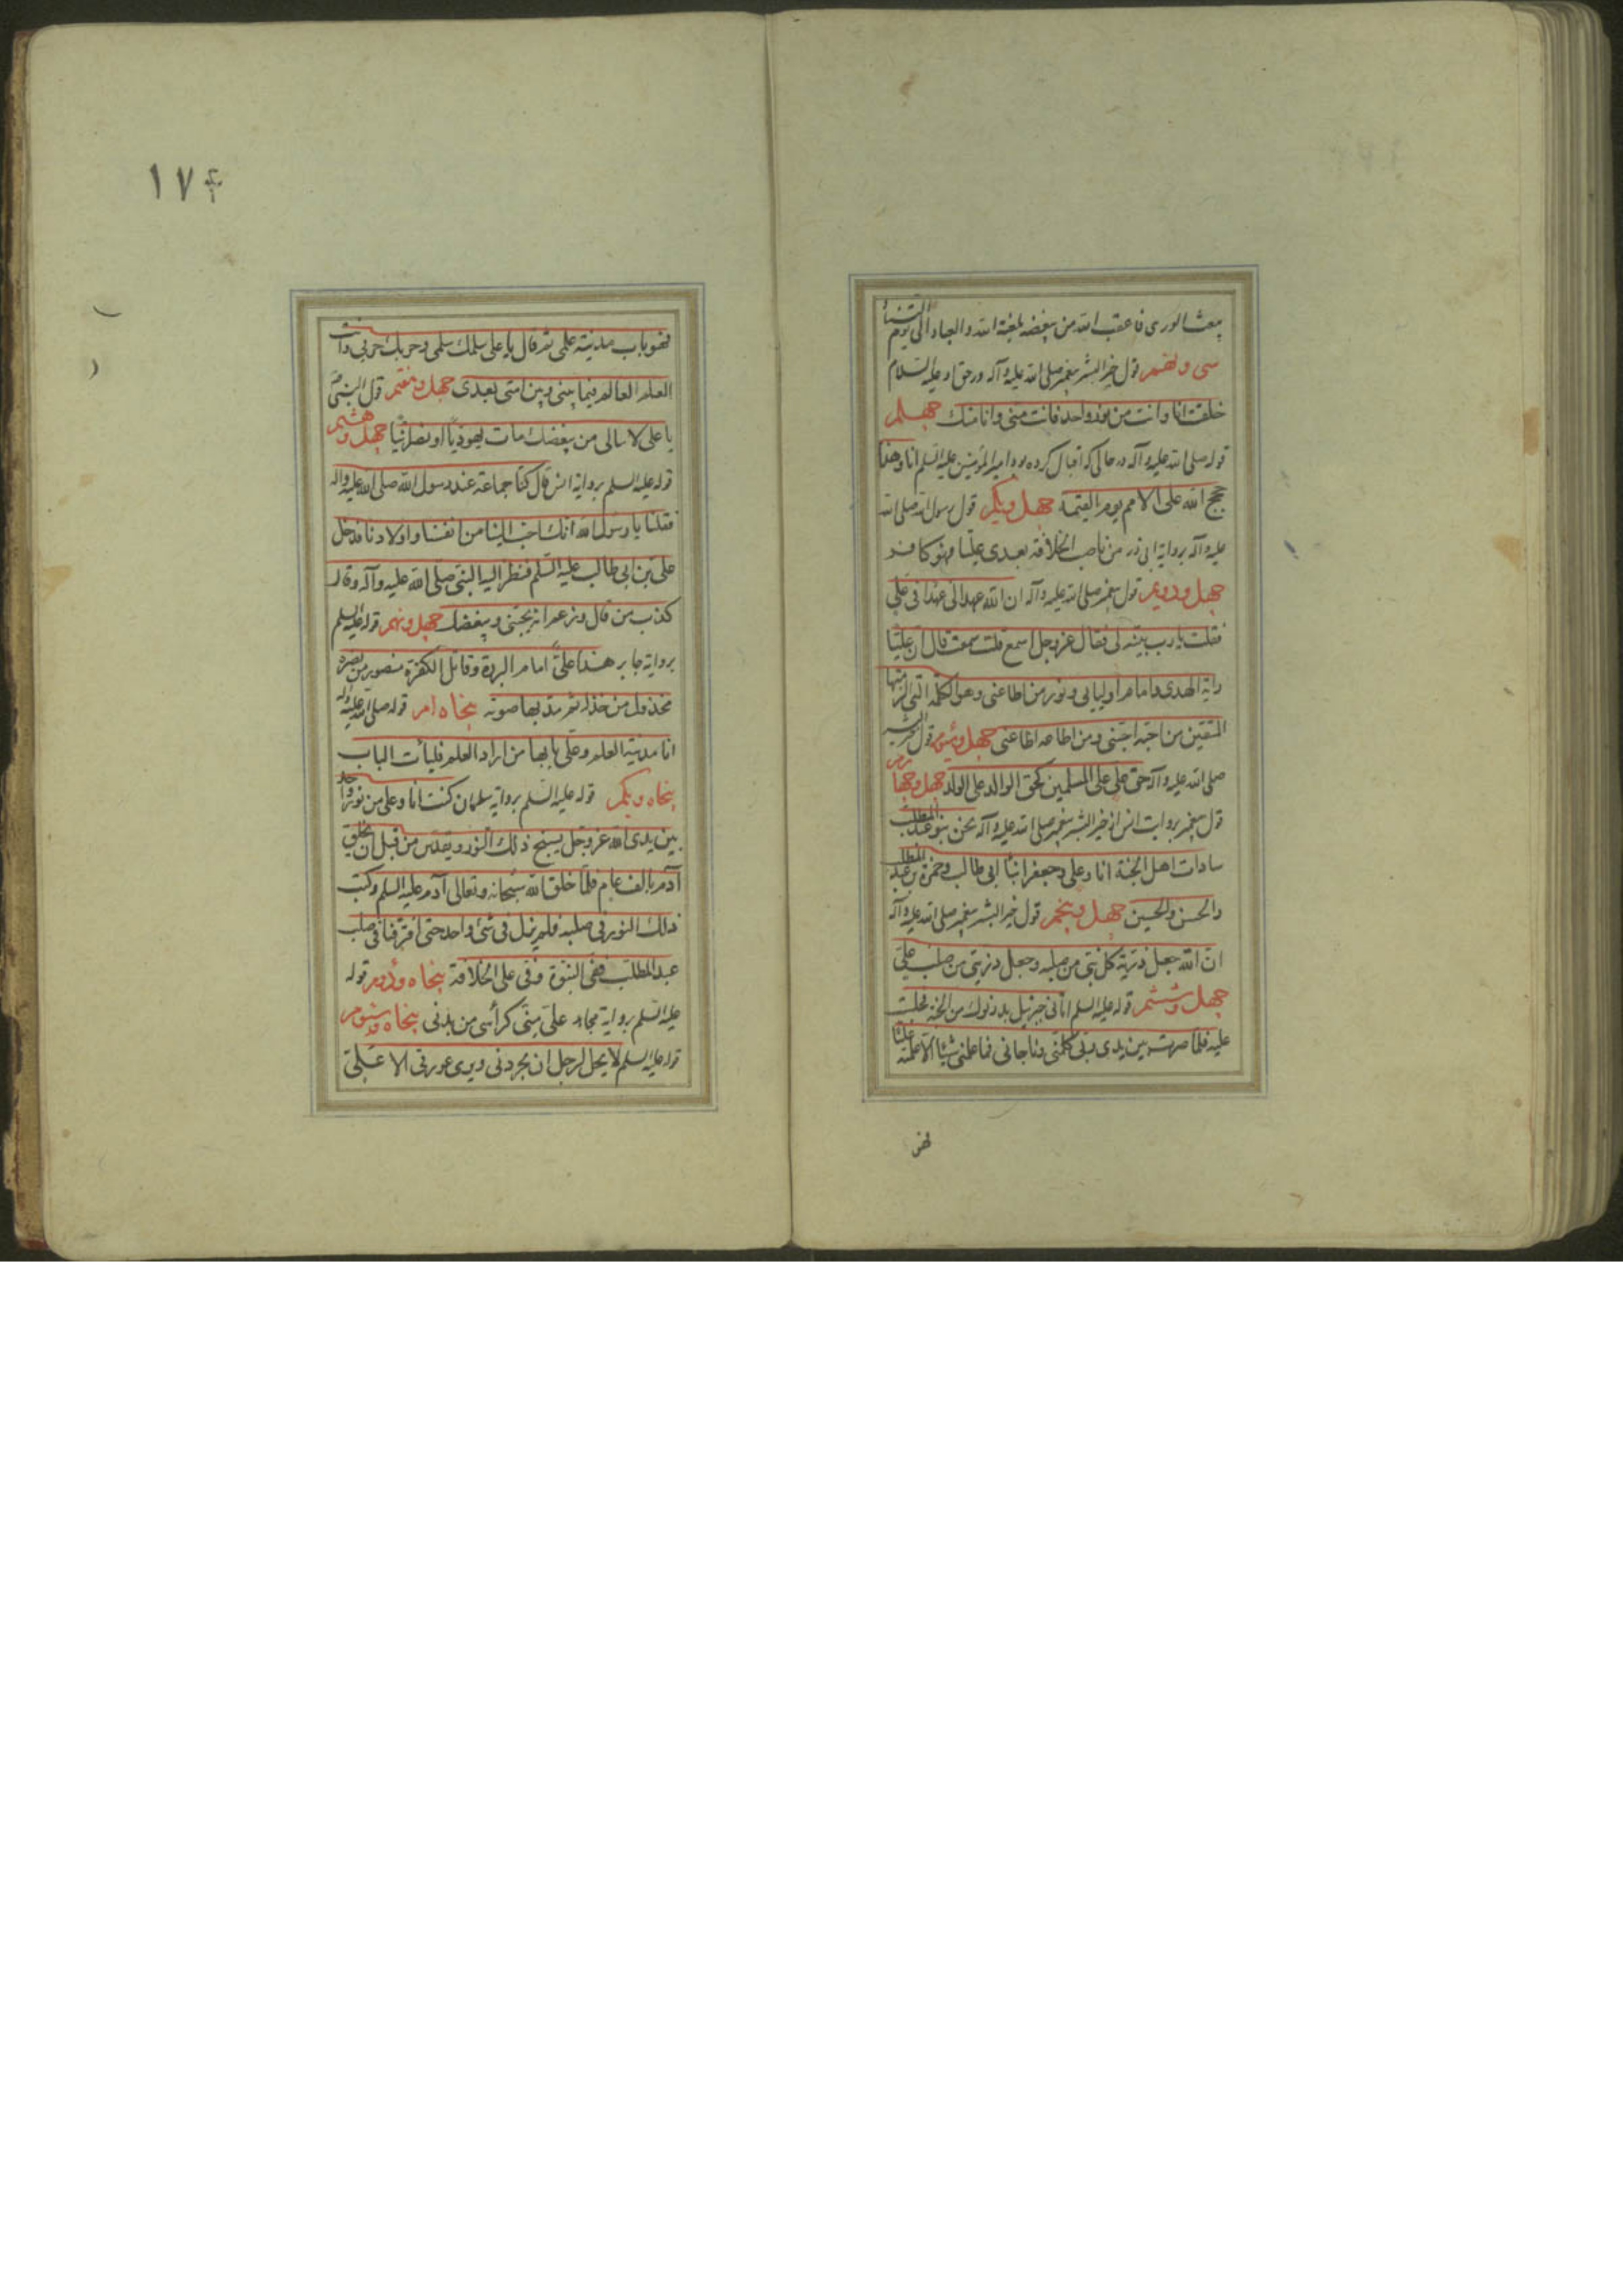 یبعث الوری فاعقب الله من یبغضه بلعنة الله والعباد الی یوم التناد
سی و نهم قول خیر البشر پیغمبر صلی الله علیه وآله در حق او علیه السلام
خلقت انا وانت من نور واحد فانت منی وانا منک چهلم
قوله صلی الله علیه وآله در حالی که اقبال کرده بود امیرالمؤمنین علیه السلم انا وهذا
حجج الله علی الامم یوم القیمة چهل ویکم قول رسول الله صلی الله
علیه وآله بروایة ابی ذر من ناصب الخلافة بعدی علیا فهو کافر
چهل ودویم قول پیغمبر صلی الله علیه وآله ان الله عهد الی عهدا فی علی
فقلت یا رب بینه لی فقال عز وجل اسمع قلت سمعت قال ان علیا
رایة الهدی وامام اولیایی ونور من اطاعنی وهو الکلمة التی الزمتها
المتقین من احبه احبنی ومن اطاعه اطاعنی چهل وسیوم قول خیر البشر
صلی الله علیه وآله حق علی علی المسلمین کحق الوالد علی الولد چهل وچهارم
قول پیغمبر بروایت انس از خیر البشر پیغمبر صلی الله علیه وآله نحن بنو عبدالمطلب
سادات اهل الجنة انا وعلی وجعفر ابنا ابی طالب وحمزة بن عبدالمطلب
والحسن والحسین چهل وپنجم قول خیر البشر پیغمبر صلی الله علیه وآله
ان الله جعل ذریة کل نبی من صلبه وجعل ذریتی من صلب علی
چهل وششم قوله علیه السلم اتانی جبرئیل بدرنوک من الجنة فجلست
علیه فلما صرت بین یدی ربی کلمنی وناجانی فما علمنی شیئا الا علمته علیا
فهو
۱۷۴
فهو باب مدینة علمی ثم قال یا علی سلمک سلمی وحربک حربی وانت
العلم العالم فیما بینی وبین امتی بعدی چهل وهفتم قول النبی ص
یا علی لا یبالی من یبغضک مات یهودیا او نصرانیا چهل وهشتم
قوله علیه السلم بروایة انس قال کنا جماعة عند رسول الله صلی الله علیه واله
فقلنا یا رسول الله انک احب الینا من انفسنا واولادنا فدخل
علی بن ابی طالب علیه السلم فنظر الیه النبی صلی الله علیه وآله وقال
کذب من قال وزعم انه یحبنی ویبغضک چهل ونهم قوله علیه السلم
بروایة جابر هذا علی امام البررة وقاتل الکفرة منصور من نصره
مخذول من خذله ثم مد بها صوته پنجاه ام قوله صلی الله علیه واله
انا مدینة العلم وعلی بابها من اراد العلم فلیأت الباب
پنجاه ویکم قوله علیه السلم بروایة سلمان کنت انا وعلی من نور واحد
بین یدی الله عز وجل یسبح ذلک النور ویقدس من قبل ان یخلق
آدم بالف عام فلما خلق الله سبحانه وتعالی آدم علیه السلم رکب
ذلک النور فی صلبه فلم یزل فی شئ واحد حتی افترقنا فی صلب
عبدالمطلب ففی النبوة وفی علی الخلافة پنجاه ودویم قوله
علیه السلم بروایة مجاهد علی منی کرأسی من بدنی پنجاه وسیوم
قوله علیه السلم لا یحل لرجل ان یجردنی ویری عورتی الا علی